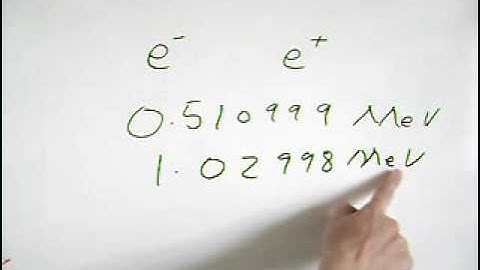 e⁻ e⁺
0.510999 MeV
1.02998 MeV